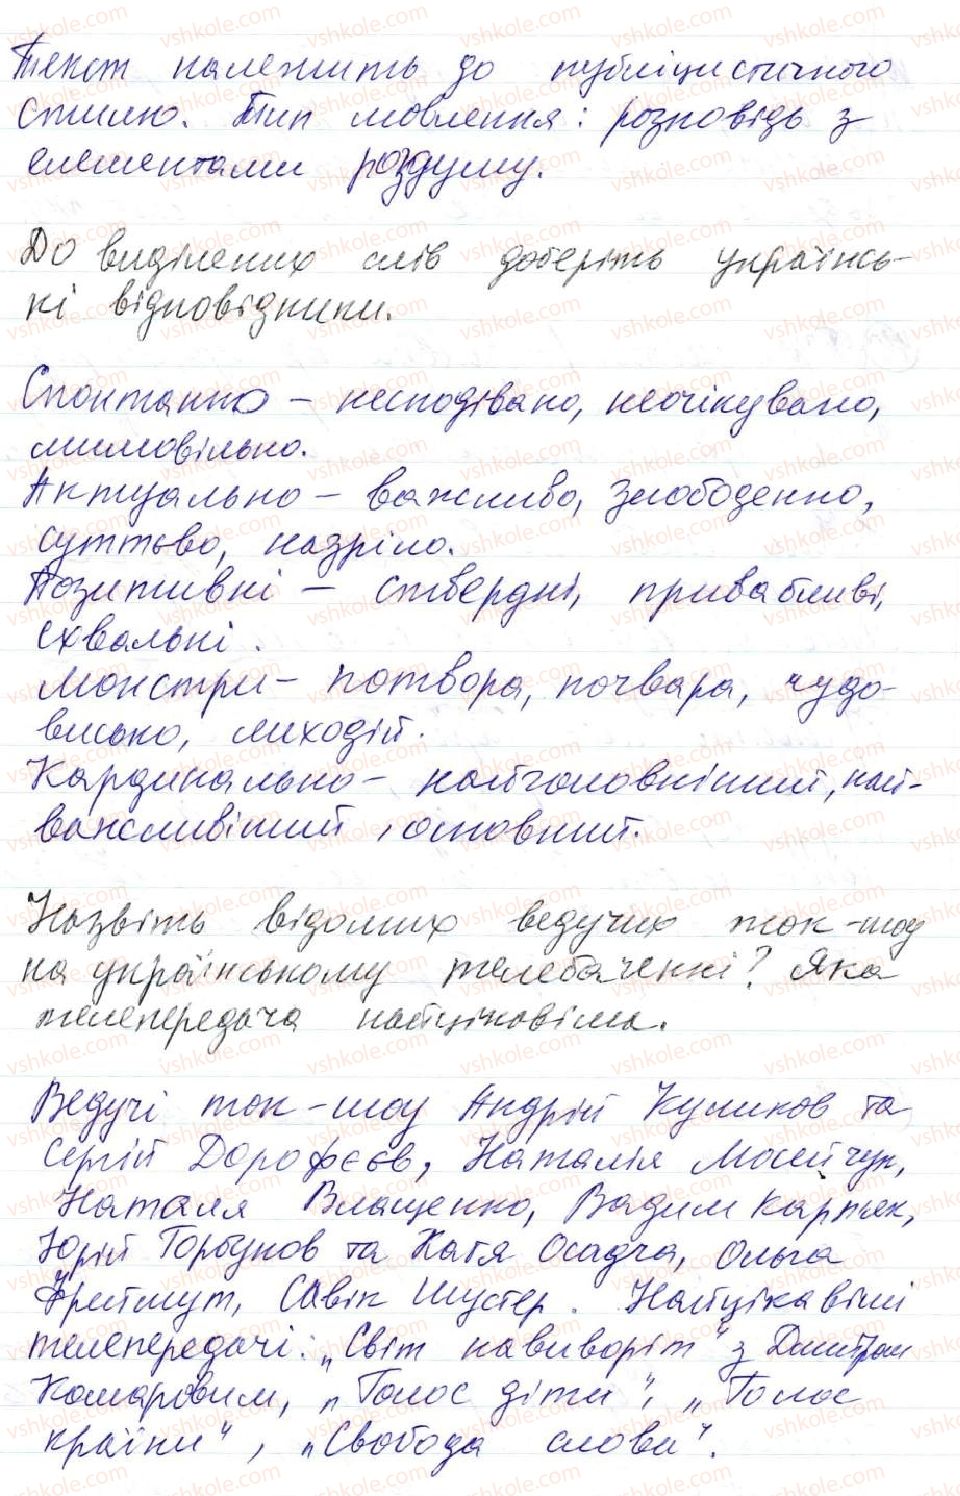 Текст належить до публіцистичного
стилю. Тип мовлення: розповідь з
елементами роздуму.
До виділених слів доберіть українсь-
кі відповідники.
Спонтанно – несподівано, неочікувано,
мимовільно.
Актуально – важливо, злободенно,
суттєво, назріло.
Позитивні – ствердні, привабливі,
схвальні.
Монстри – потвора, почвара, чудо-
висько, лиходій.
Кардинально – найголовніший, най-
важливіший, основний.
Назвіть відомих ведучих ток-шоу
на українському телебаченні? Яка
телепередача найцікавіша.
Ведучі ток-шоу Андрій Куликов та
Сергій Дорофєєв, Наталія Мосейчук,
Наталя Влащенко, Вадим Карпяк,
Юрій Горбунов та Катя Осадча, Ольга
Фреймут, Савік Шустер. Найцікавіші
телепередачі: „Світ навиворіт" з Дмитром
Комаровим, „Голос діти", „Голос
країни", „Свобода слова".
vshkole.com